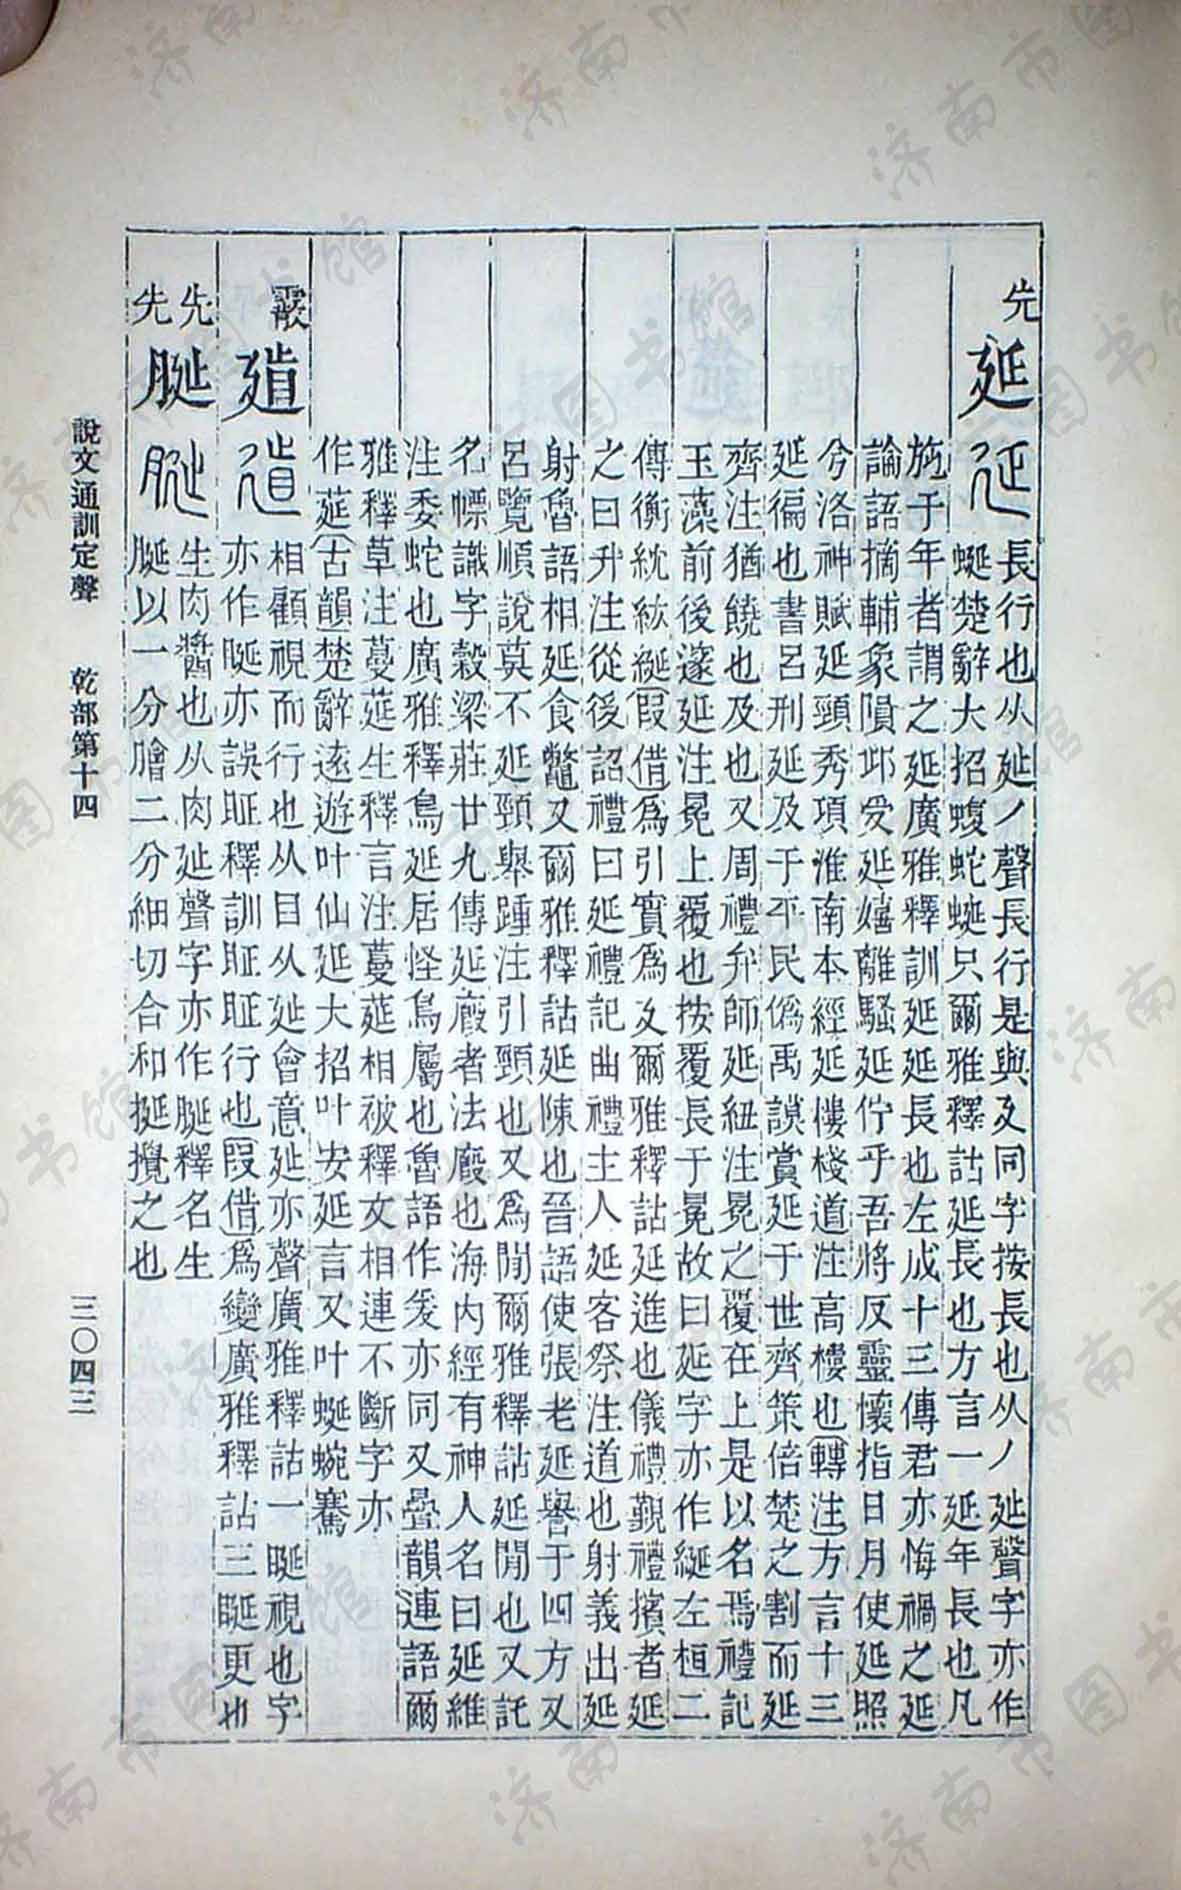 先
延
延
長行也从㢟丿聲長行是與廴同字按長也从丿㢟聲字亦作
蜒楚辭大招蝮蛇蜒只爾雅釋詁延長也方言一延年長也凡
施于年者謂之延廣雅釋訓延延長也左成十三傳君亦悔禍之延
論語摘輔象隕邱受延嬉離騷延佇乎吾將反靈懷指日月使延照
兮洛神賦延頸秀項淮南本經延樓棧道注高樓也轉注方言十三
延徧也書呂刑延及于平民僞禹謨賞延于世齊策倍楚之割而延
齊注猶饒也及也又周禮弁師延紐注冕之覆在上是以名焉禮記
玉藻前後邃延注冕上覆也按覆長于冕故曰延字亦作綖左桓二
傳衡紞紘綖叚借爲引實爲廴爾雅釋詁延進也儀禮覲禮擯者延
之曰升注從後詔禮曰延禮記曲禮主人延客祭注道也射義出延
射魯語相延食鼈又爾雅釋詁延陳也晉語使張老延譽于四方又
呂覽順說莫不延頸舉踵注引頸也又爲閒爾雅釋詁延閒也又託
名幖識字穀梁莊廿九傳延廄者法廄也海內經有神人名曰延維
注委蛇也廣雅釋鳥延居怪鳥屬也魯語作爰亦同又疊韻連語爾
雅釋草注蔓莚生釋言注蔓莚相被釋文相連不斷字亦
作莚古韻楚辭遠遊叶仙延大招叶安延言又叶蜒蜿騫
霰
相顧視而行也从目从㢟會意㢟亦聲廣雅釋詁一䀽視也字
亦作䀽亦誤眐釋訓眐眐行也叚借爲變廣雅釋詁三䀽更也
先
先
脠
脠
生肉醬也从肉㢟聲字亦作脡釋名生
脡以一分膾二分細切合和挻攪之也
說文通訓定聲　乾部第十四
三〇四三
济南市图书馆